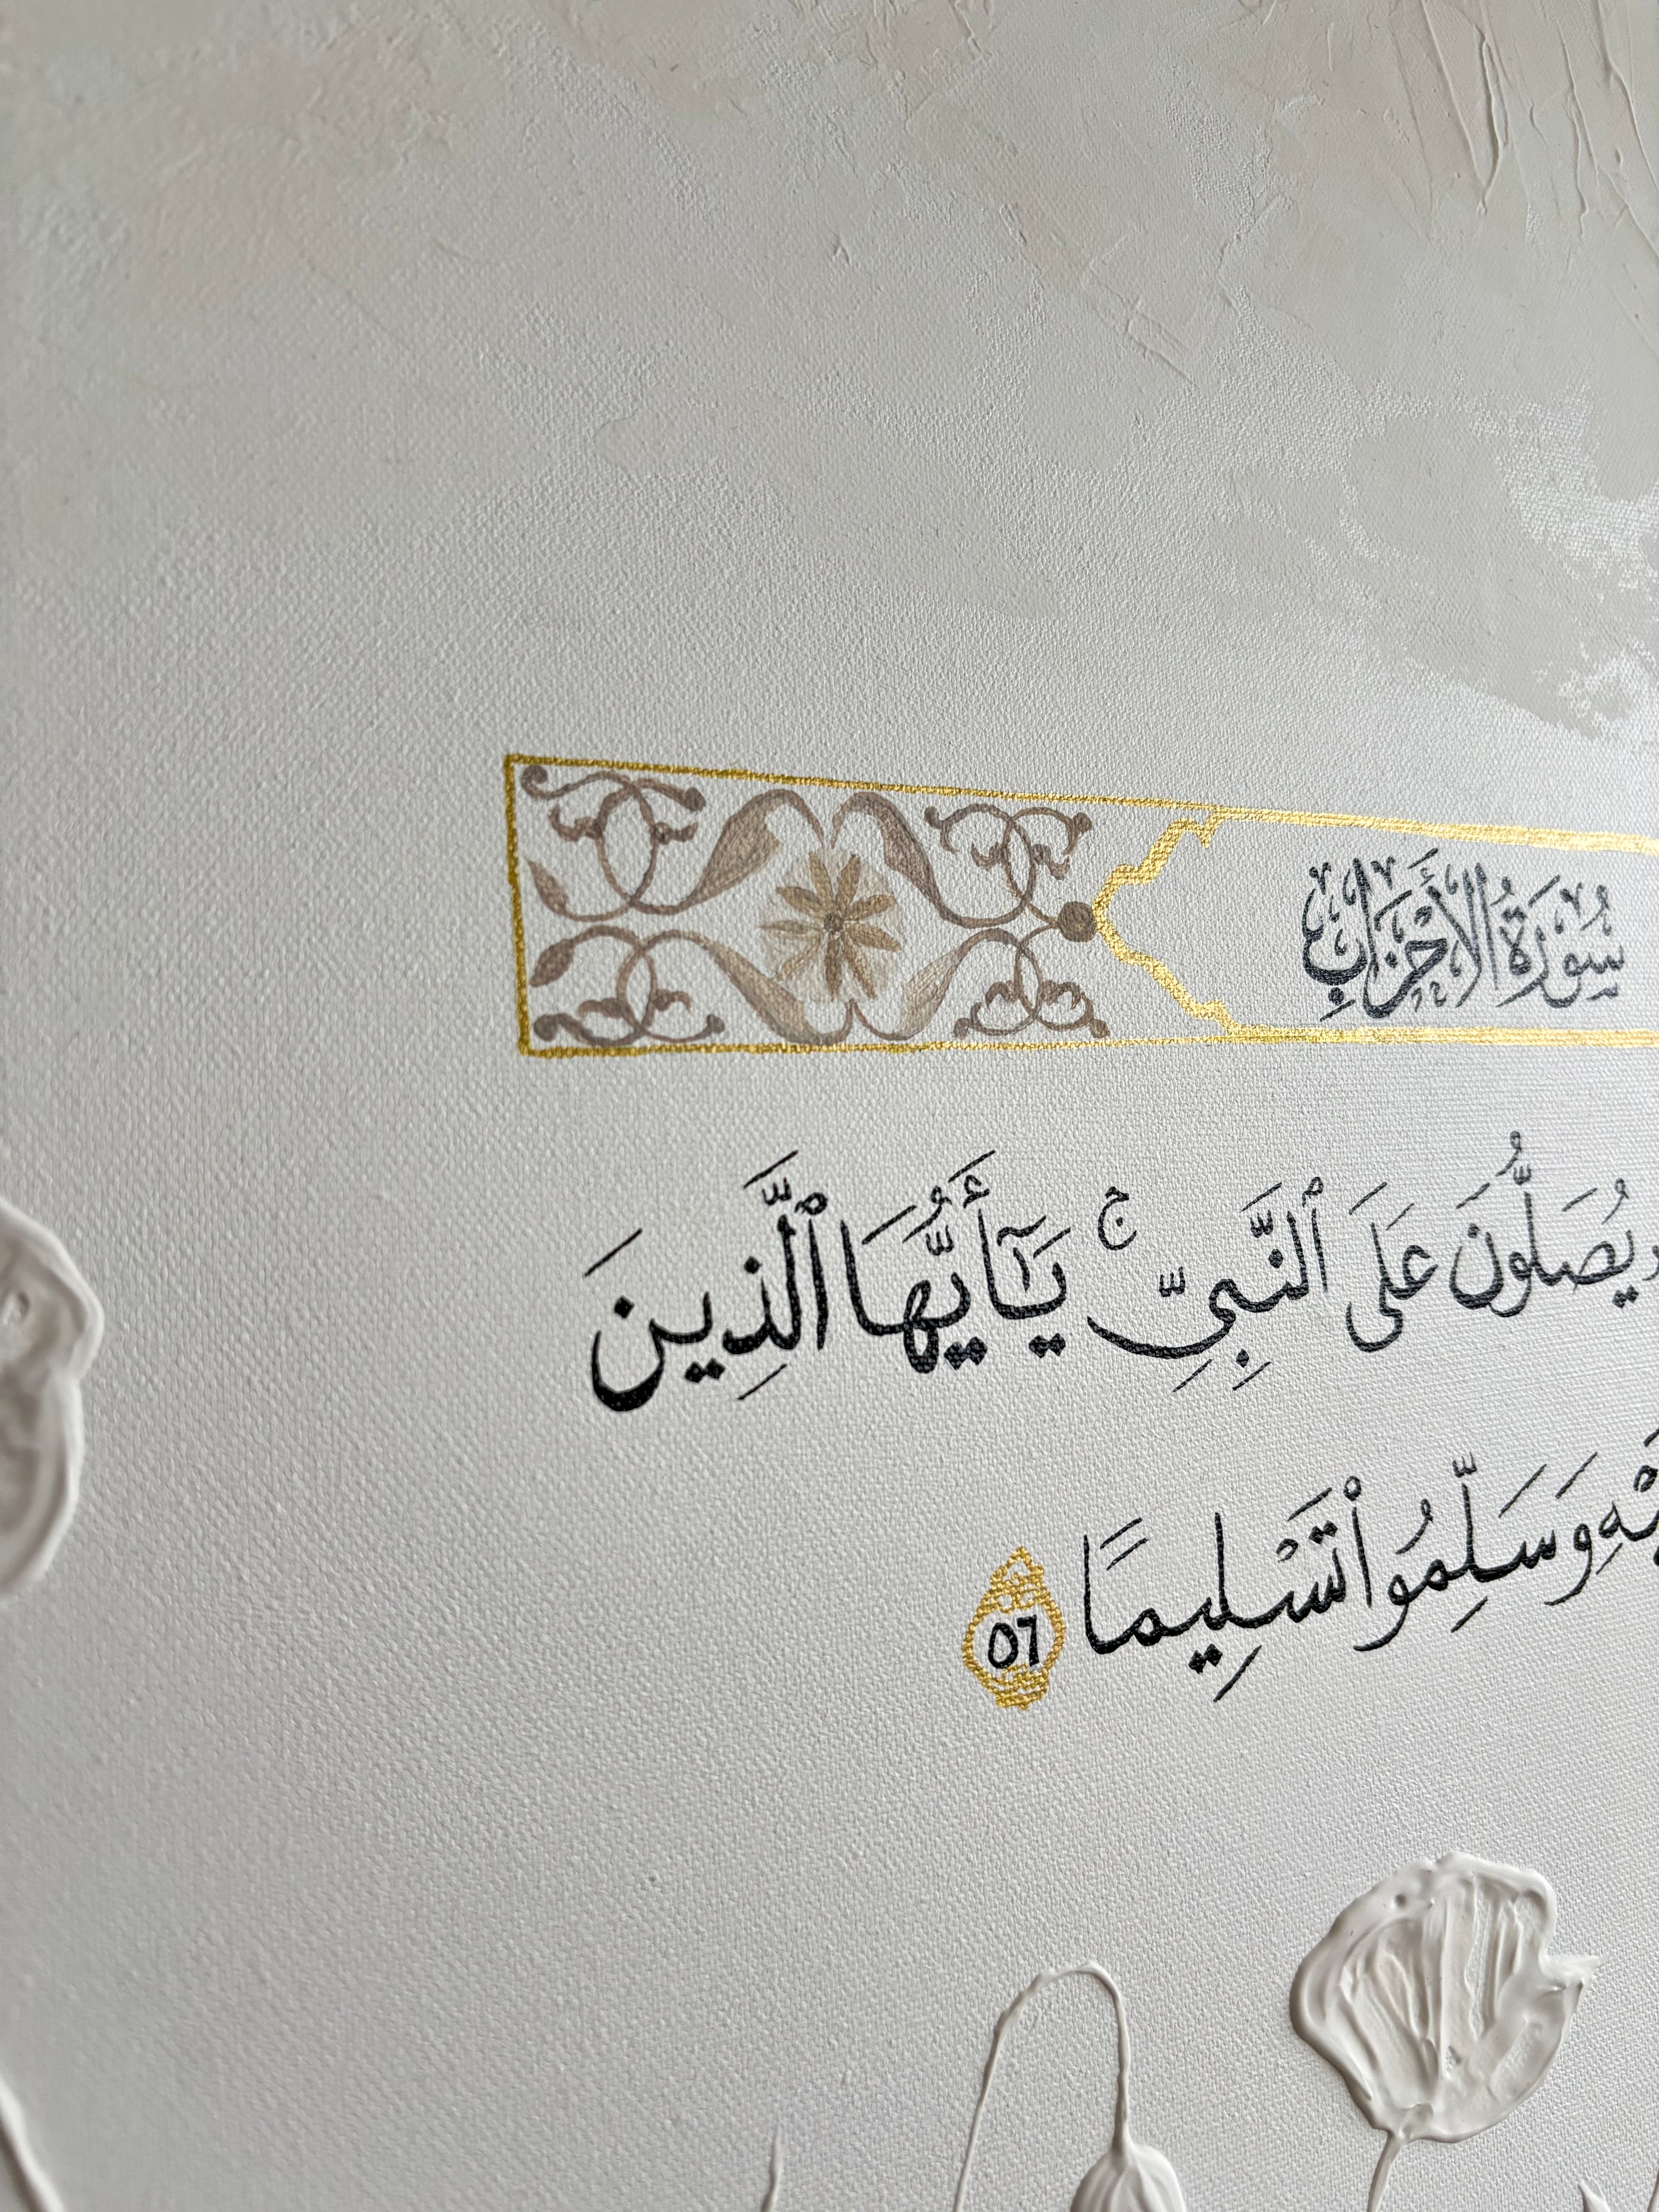 سُورَةُ الأَحْزَابِ
يُصَلُّونَ عَلَى ٱلنَّبِيِّ ۚ يَـٰٓأَيُّهَا ٱلَّذِينَ
وَسَلِّمُوا۟ تَسْلِيمًا ٥٦